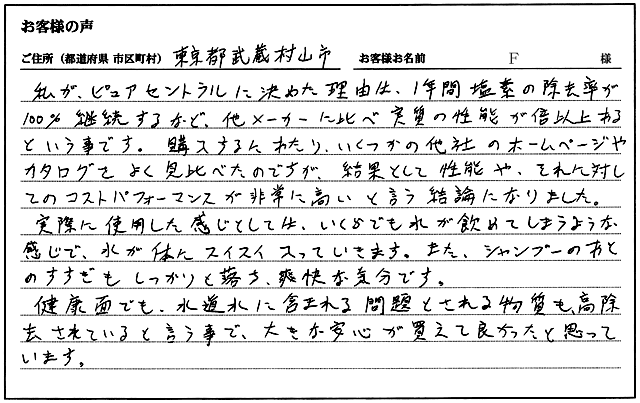 お客様の声
ご住所（都道府県 市区町村） 東京都武蔵村山市 お客様お名前 F 様
私が、ピュアセントラルに決めた理由は、1年間塩素の除去率が
100％継続するなど、他メーカーに比べ実質の性能が倍以上ある
という事です。購入するにあたり、いくつかの他社のホームページや
カタログをよく見比べたのですが、結果として性能や、それに対し
てのコストパフォーマンスが非常に高いと言う結論になりました。
実際に使用した感じとしては、いくらでも水が飲めてしまうような
感じで、水が体にスイスイ入っていきます。また、シャンプーのあと
のすすぎもしっかりと落ち、爽快な気分です。
健康面でも、水道水に含まれる問題とされる物質も、高除
去されていると言う事で、大きな安心が買えて良かったと思って
います。